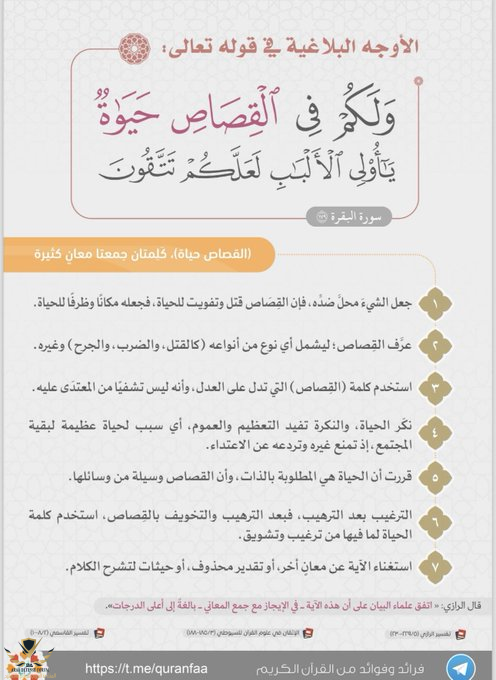 الأوجه البلاغية في قوله تعالى:
وَلَكُمْ فِي ٱلْقِصَاصِ حَيَوٰةٌ
يَـٰٓأُو۟لِي ٱلْأَلْبَـٰبِ لَعَلَّكُمْ تَتَّقُونَ
سورة البقرة ١٧٩
(القصاص حياة)، كَلِمتان جمعتا معانٍ كثيرة
١ جعل الشيءَ محلَّ ضدِّه، فإن القِصَاص قتل وتفويت للحياة، فجعله مكانًا وظرفًا للحياة.
٢ عرَّف القِصاص؛ ليشمل أي نوع من أنواعه (كالقتل، والضرب، والجرح) وغيره.
٣ استخدم كلمة (القِصاص) التي تدل على العدل، وأنه ليس تشفيًا من المعتدَى عليه.
٤ نكَّر الحياة، والنكرة تفيد التعظيم والعموم، أي سبب لحياة عظيمة لبقية
المجتمع، إذ تمنع غيره وتردعه عن الاعتداء.
٥ قررت أن الحياة هي المطلوبة بالذات، وأن القصاص وسيلة من وسائلها.
٦ الترغيب بعد الترهيب، فبعد الترهيب والتخويف بالقِصاص، استخدم كلمة
الحياة لما فيها من ترغيب وتشويق.
٧ استغناء الآية عن معانٍ أخر، أو تقدير محذوف، أو حيثات لتشرح الكلام.
قال الرازي: « اتفق علماء البيان على أن هذه الآية ـ في الإيجاز مع جمع المعاني ـ بالغةٌ إلى أعلى الدرجات».
تفسير الرازي (٢٢٩/٥-٢٣٠)
الإتقان في علوم القرآن للسيوطي (١٨٥/٣-١٨٨)
تفسير القاسمي (٨/٢-١٠)
فرائد وفوائد من القرآن الكريم
https://t.me/quranfaa